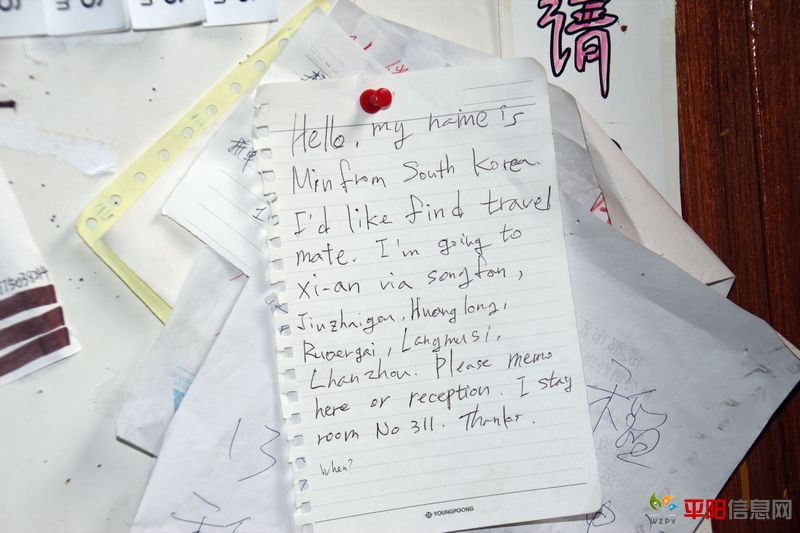 请
Hello, my name is
Min from South Korea.
I'd like find travel
mate. I'm going to
xi-an via songfan,
Jiuzhaigou, Huanglong,
Ruoergai, Langmusi,
Lhanzhou. Please memo
here or reception. I stay
room No 311. Thanks.
When?
YOUNGPOONG
13
WZPY 平阳信息网